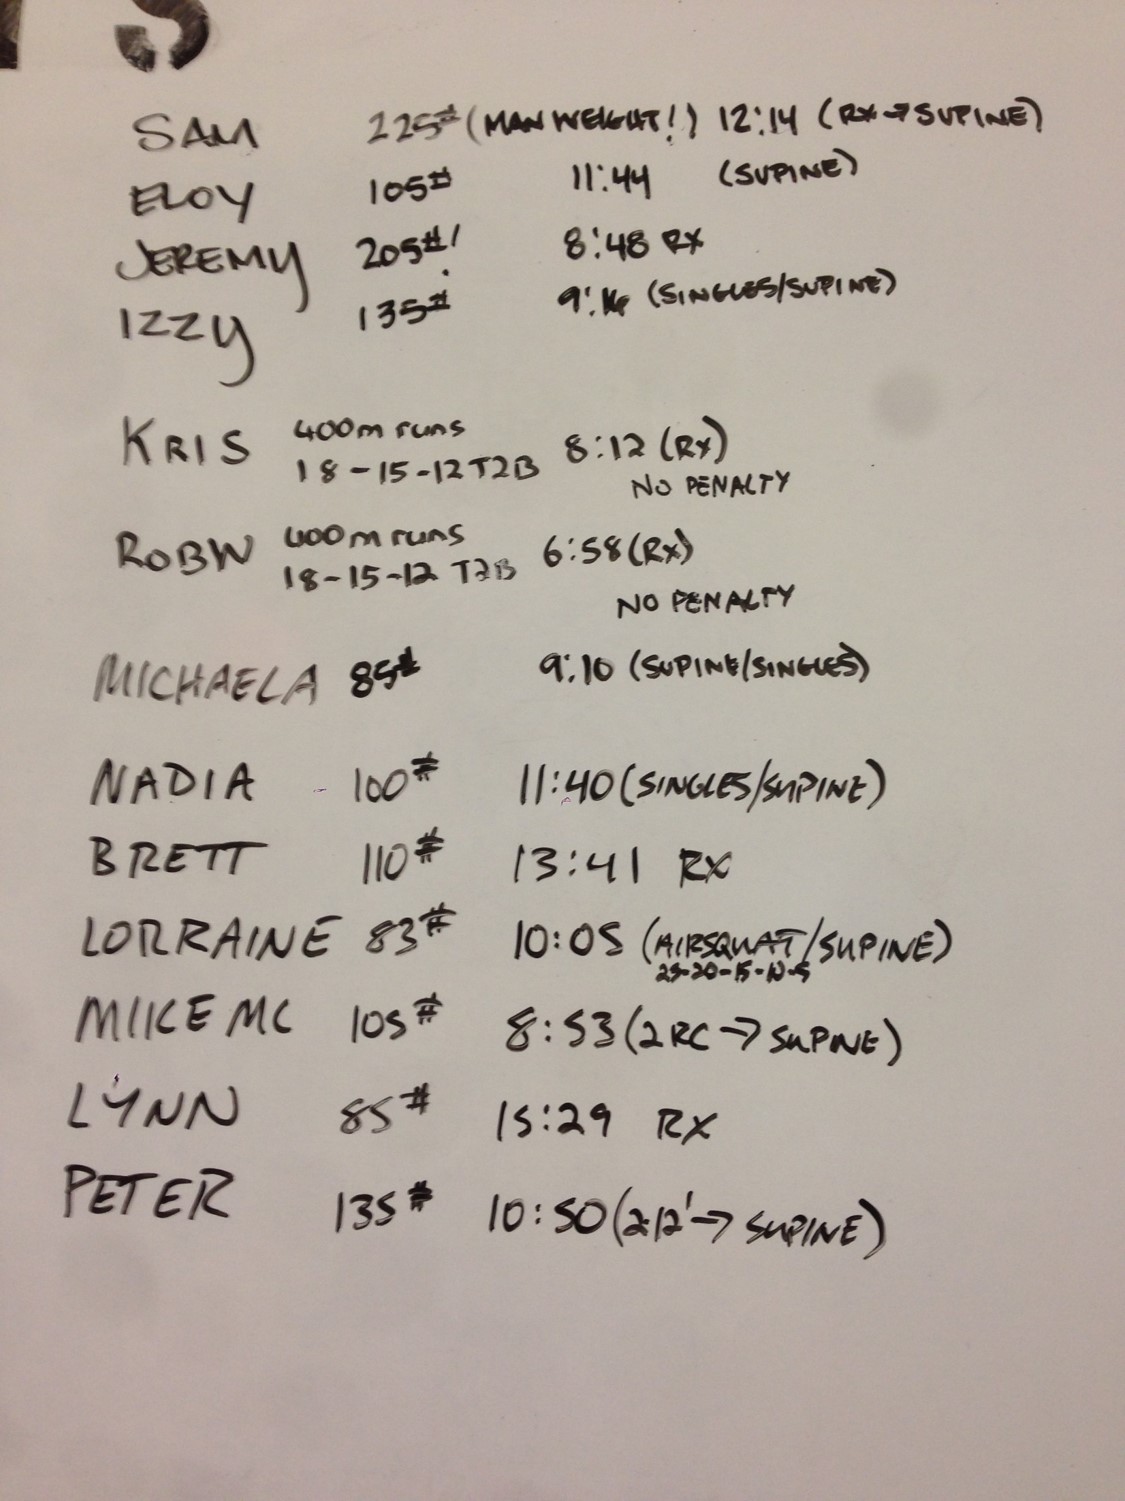 SAM 225# (MAN WEIGHT!) 12:14 (RX→SUPINE)
ELOY 105# 11:44 (SUPINE)
JEREMY 205#! 8:48 RX
IZZY 135# (SINGLES/SUPINE)
KRIS 400m runs
18-15-12 T2B 8:12 (RX)
NO PENALTY
ROB W 400m runs
18-15-12 T2B 6:58 (RX)
NO PENALTY
MICHAELA 85# 9:10 (SUPINE/SINGLES)
NADIA 100# 11:40 (SINGLES/SUPINE)
BRETT 110# 13:41 RX
LORRAINE 83# 10:05 (AIRSQUAT/SUPINE)
25-20-15-10-5
MIKE MC 105# 8:53 (2RC → SUPINE)
LYNN 85# 15:29 RX
PETER 135# 10:50 (→ SUPINE)